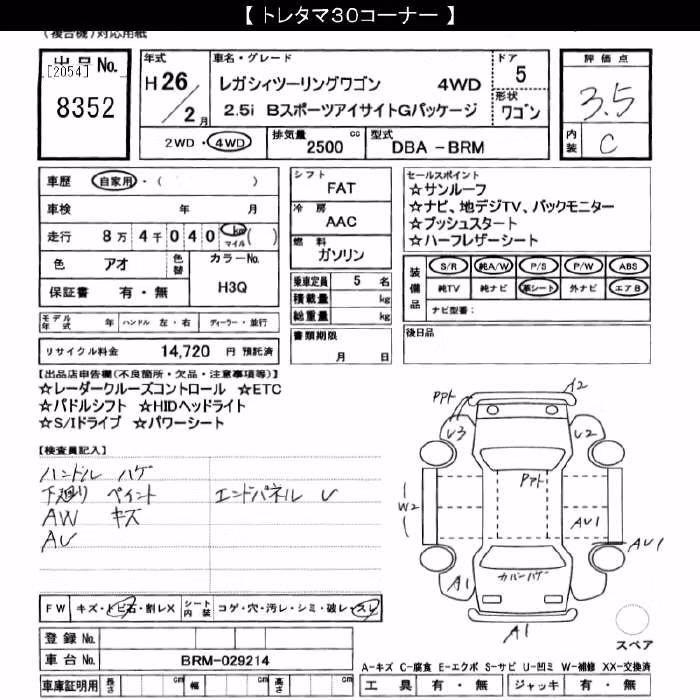 【 トレタマ３０コーナー 】
(複合機)対応用紙
出品No.
[2054]
8352
年式
H 26 / 2 月
車名・グレード
レガシィツーリングワゴン 4WD
2.5i BスポーツアイサイトGパッケージ
ドア
5
形状
ワゴン
評価点
3.5
内装
C
2WD・4WD
排気量
2500 cc
型式
DBA －BRM
車歴 自家用・( )
車検 年 月
走行 8万 4千 0 4 0 km マイル ( )
色 アオ 色替 カラーNo.
H3Q
保証書 有・無
シフト
FAT
冷房
AAC
燃料
ガソリン
乗車定員 5 名
積載量 kg
総重量 kg
セールスポイント
☆サンルーフ
☆ナビ、地デジTV、バックモニター
☆プッシュスタート
☆ハーフレザーシート
装備品
S/R 純A/W P/S P/W ABS
純TV 純ナビ 革シート 外ナビ エアB
ナビ型番：
モデル年式 年 ハンドル 左・右 ディーラー・並行
リサイクル料金 14,720 円 預託済
書類期限
月 日
後日品
【出品店申告欄(不良箇所・欠品・注意事項等)】
☆レーダークルーズコントロール ☆ETC
☆パドルシフト ☆HIDヘッドライト
☆S/Iドライブ ☆パワーシート
【検査員記入】
ハンドル ハゲ
下廻り ペイント エンドパネル U
AW キズ
AU
PPト
A2
U3
U2
PPト
W2
AU1
AU1
カバーハゲ
A1
A1
スペア
FW キズ・トビ石・割レX シート内装 コゲ・穴・汚レ・シミ・破レ・スレ
登録 No.
車台 No. BRM-029214
車庫証明用 長さ cm 幅 cm 高さ cm
A−キズ C−腐食 E−エクボ S−サビ U−凹ミ W−補修 XX−交換済
工具 有・無 ジャッキ 有・無